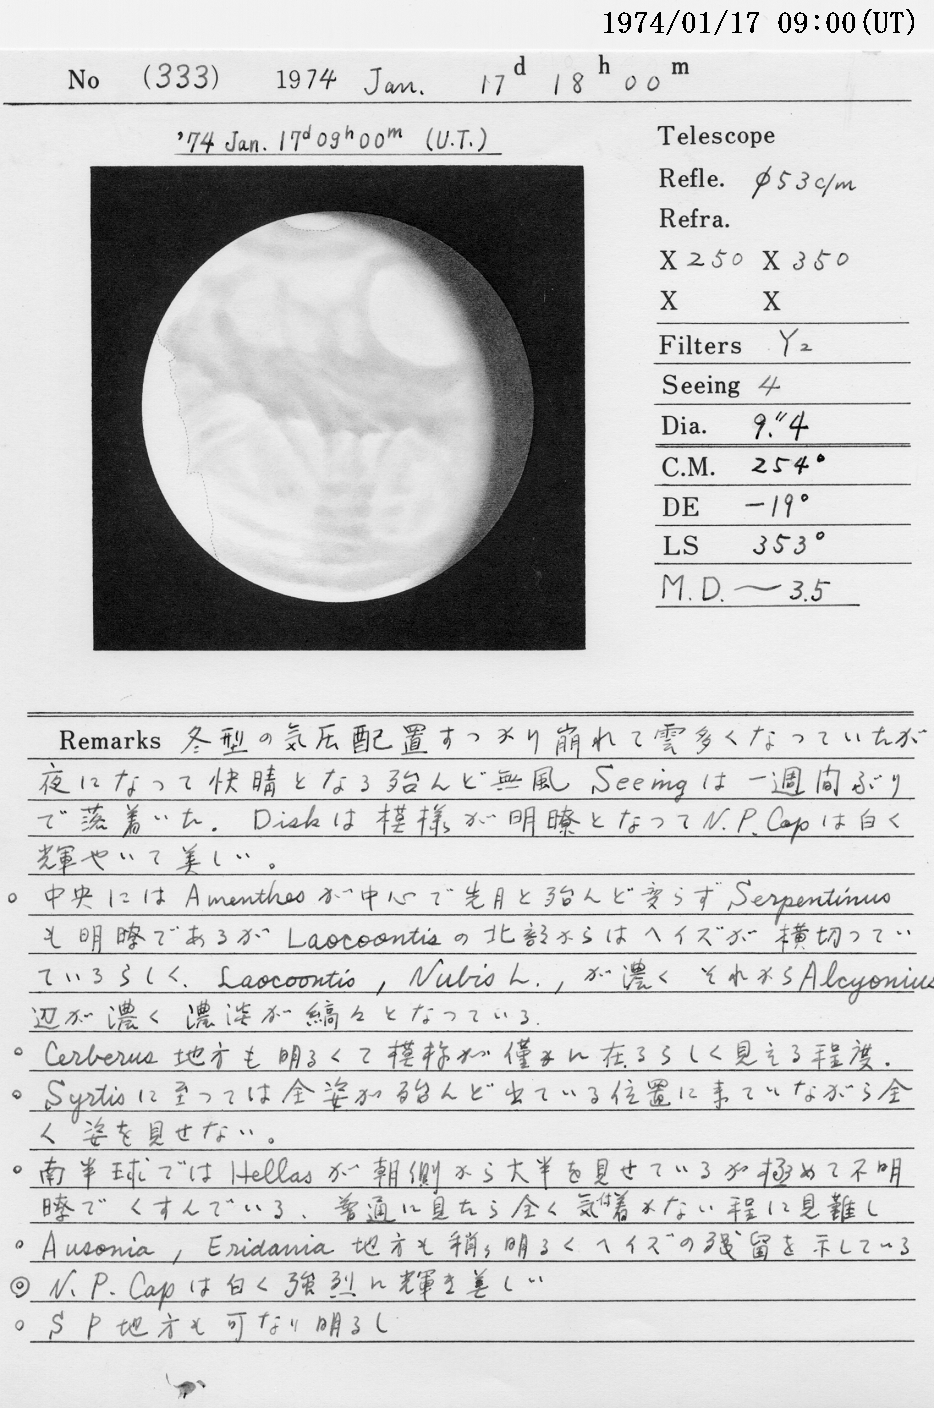 1974/01/17 09:00(UT)
No (333) 1974 Jan. 17d 18h 00m
'74 Jan. 17d 09h 00m (U.T.)
Telescope
Refle. φ53c/m
Refra.
X 250 X 350
X X
Filters Y2
Seeing 4
Dia. 9."4
C.M. 254°
DE -19°
LS 353°
M.D. ~ 3.5
Remarks 冬型の気圧配置すっかり崩れて雲多くなっていたが
夜になって快晴となる殆んど無風 Seeingは一週間ぶり
で落着いた. Diskは模様が明瞭となってN.P.Capは白く
輝やいて美しい。
○ 中央にはAmenthesが中心で先月と殆んど変らず Serpentinus
も明瞭であるがLaocoontisの北部からはヘイズが横切ってい
ているらしく. Laocoontis, Nubis L., が濃くそれからAlcyonius
辺が濃く濃淡が縞々となっている.
○ Cerberus地方も明るくて模様が僅かに在るらしく見える程度.
○ Syrtisに至っては全姿が殆んど出ている位置に来ていながら全
く姿を見せない。
○ 南半球ではHellasが朝側から大半を見せているが極めて不明
瞭でくすんでいる. 普通に見たら全く気付着かない程に見難し
○ Ausonia, Eridania地方も稍々明るくヘイズの残留を示している
◎ N.P.Capは白く強烈に輝き美しい
○ SP地方も可なり明るし